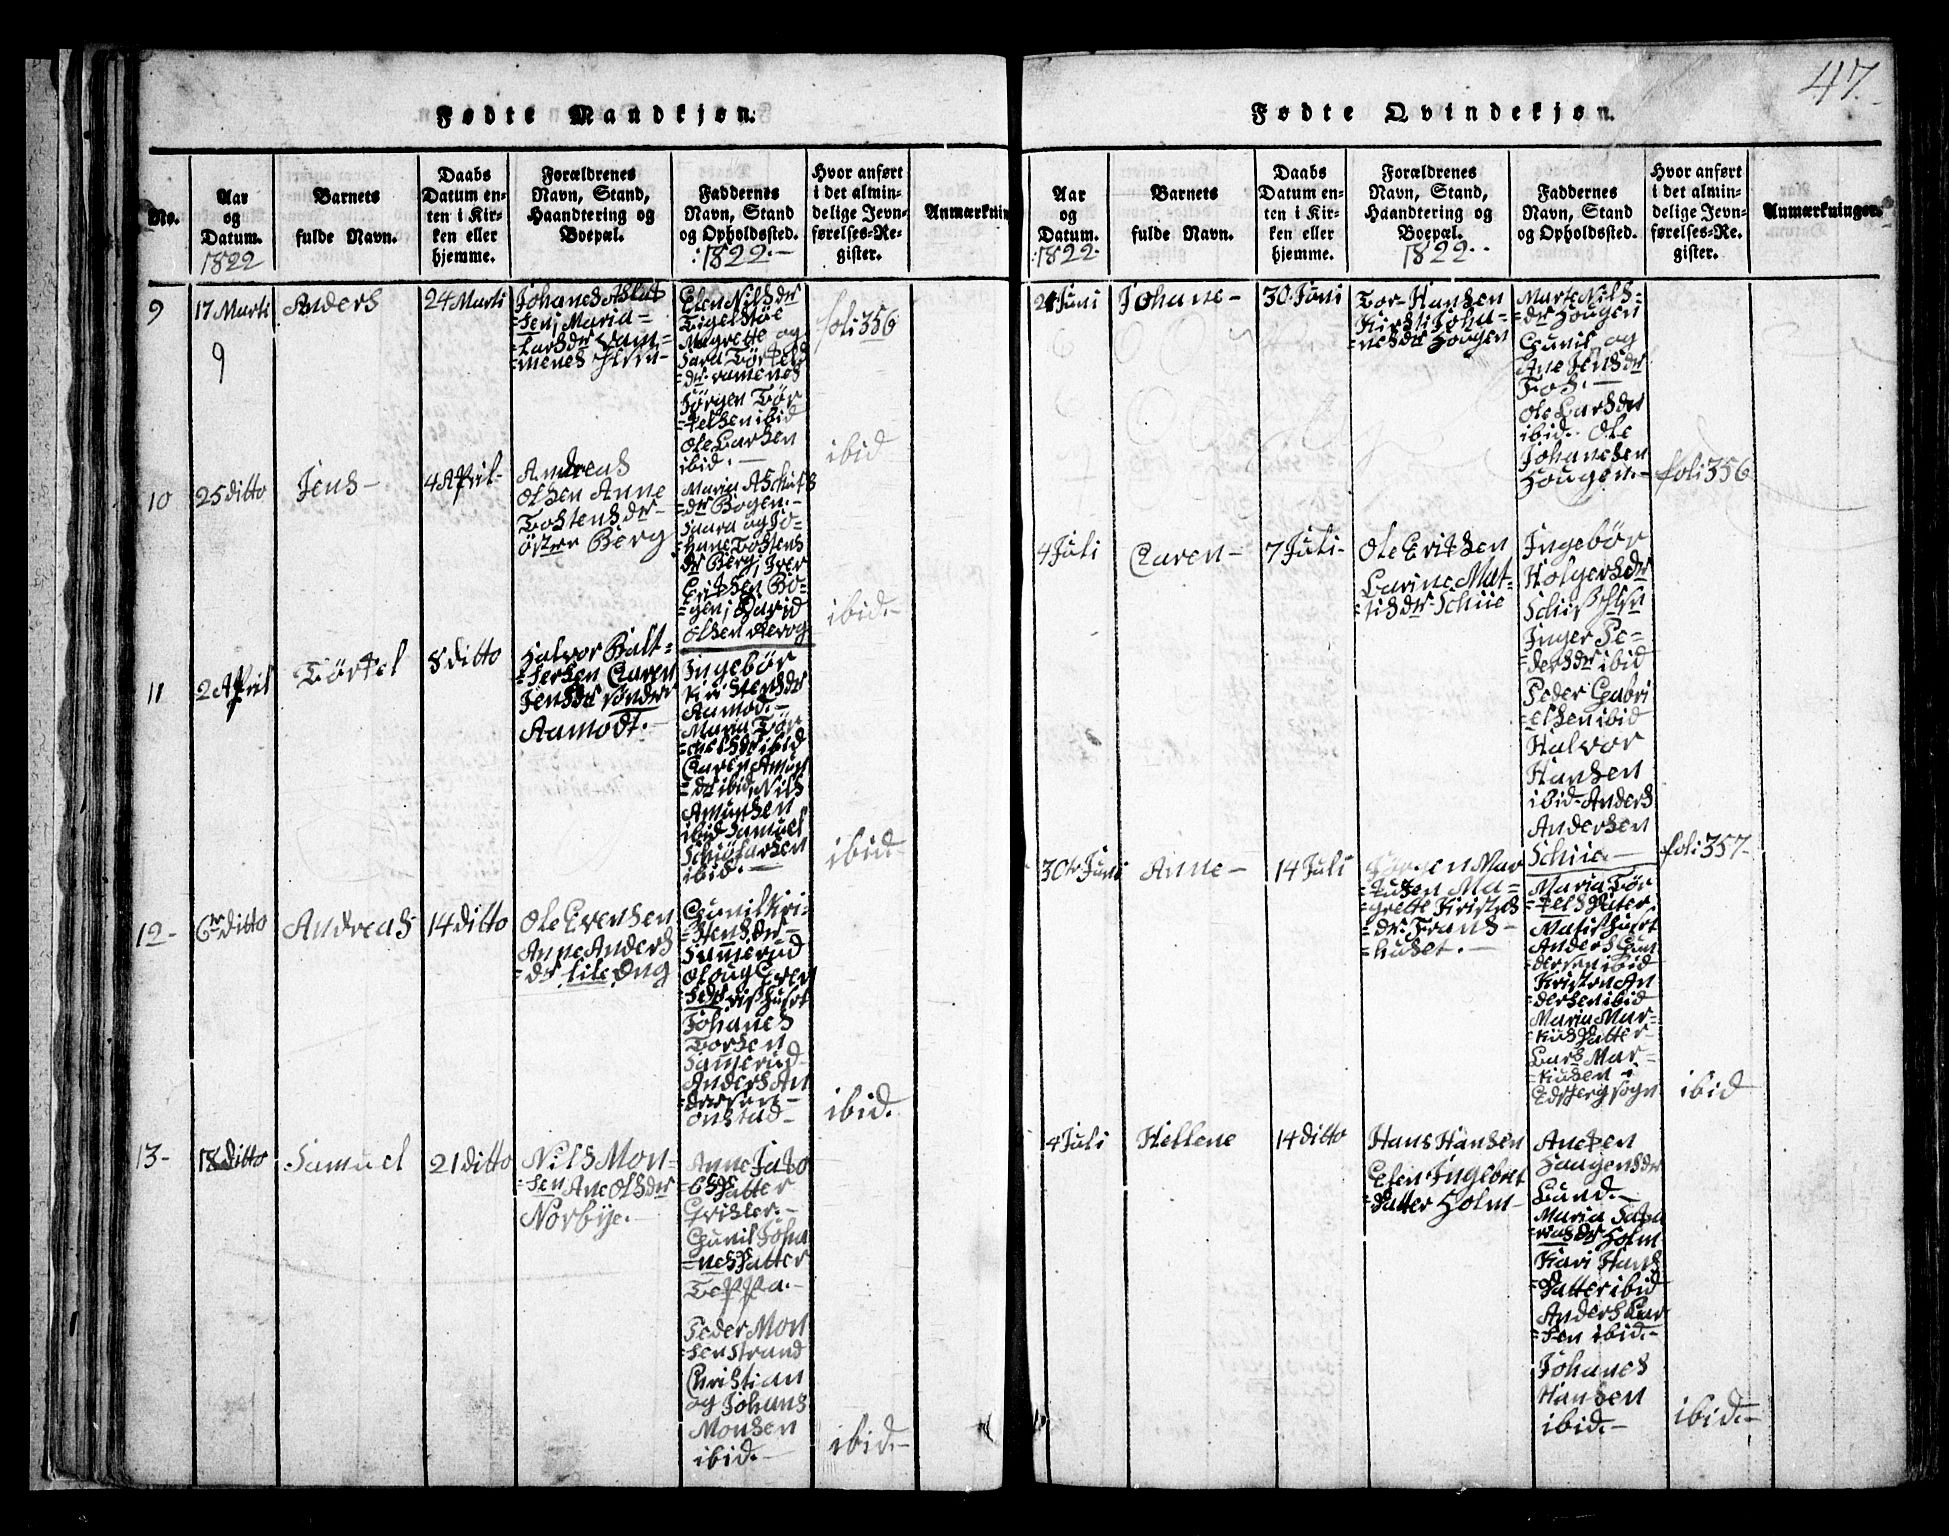 47.
Fødte Mandkjøn.
No.
Aar og Datum.
1822
Barnets fulde Navn.
Daabs Datum enten i Kirken eller hjemme.
Forældrenes Navn, Stand, Haandtering og Boepæl.
Faddernes Navn, Stand og Opholdssted.
:1822.-
Hvor anført i det almindelige Jevnførelses-Register.
Anmærknin
9
17 Marti
Anders
24 Marti
Johanes Aslak
=sen, Maria
Larsdr
9
Elen Nilsdr
Magrete og
Sara Törkels
=dr
Jörgen Tör
=kelsen ibid
Ole Larsen
ibid.-
foli 356
10
25 ditto
Jens-
4 April-
Andreas
Olsen Anne
Tostensdr-
öster Berg
Maria
=dr Bogen.-
Saara og Jo-
hane Tostens
dr Berg, Iver
Eriksen Bo-
=gen, David
Olsen
ibid
11
2 April
Törkel
8 ditto
Halvor Balt-
=sersen Caren
Jensdr sönder
Aamodt.-
Ingebör
Kristensdr
Aamod.-
Maria Tör
=kelsdr ibid
Caren
=dr ibid, Nils
Amunsen
ibid Samuel
ibid.-
ibid.-
12-
6te ditto
Andreas
14 ditto
Ole Evensen
Anne Anders
=dr lile Eng
Gunil Kri-
=stensdr-
Oloug Even
Johanes
Torsen
Anders An
dersen-
Onstad-
ibid-
ibid.
13-
18 ditto
Samuel
21 ditto
Nils Mon-
=sen Ane Olsdr
Norbye.-
Anne Jako
=bsdatter
Gunil Joha
=nesdatter
Toppa.-
Peder Mon
=sen Strand
Christian
og Johans
Monsen
ibid.-
ibid.-
Fødte Qvindekjøn.
Aar og Datum.
:1822.
Barnets fulde Navn.
Daabs Datum enten i Kirken eller hjemme.
Forældrenes Navn, Stand, Haandtering og Boepæl.
1822.-
Faddernes Navn, Stand og Opholdssted.
Hvor anført i det almindelige Jevnførelses-Register.
Anmærkninger.
Juni
Johane-
30 Juni
Tor Hansen
Kirsti Joha-
=nesdr Hougen
Marte Nils-
=dr Hougen
Gunil og
Ane Jensdr
Fos.-
Ole Larsdr
ibid. Ole
Johanesen
Hougen.-
foli 356
4 Juli
Caren-
7 Juli-
Ole Eriksen
Carine Mat-
=tisdr Schiie
Ingebör
Holgersdr
Inger Pe-
=dersdr ibid
Peder Gabri
=elsen ibid
Halvor
Hansen
ibid. Anders
Andersen
Schiie.-
foli 357-
30te Juni
Anne-
14 Juli
Jörgen Mar
=kusen Ma-
=grette Kristens
=dr Frans-
=huset.-
Maria Tör
=kelsdater
Anders Gun
dersen ibid
Kristen An
dersen ibid
Maria Mar-
=kusdatter-
Lars Mar-
=kusen i
Edsberg sogn
ibid
4 Juli
Hellene
14 ditto
Hans Hansen
Elen Ingebret
=datter Holm-
Haagensdr
Lund.-
Maria Saka
=riasdr Holm
Kari Hans
=datter ibid
Anders Lar
=sen ibid.-
Johanes
Hansen
ibid.-
ibid.-